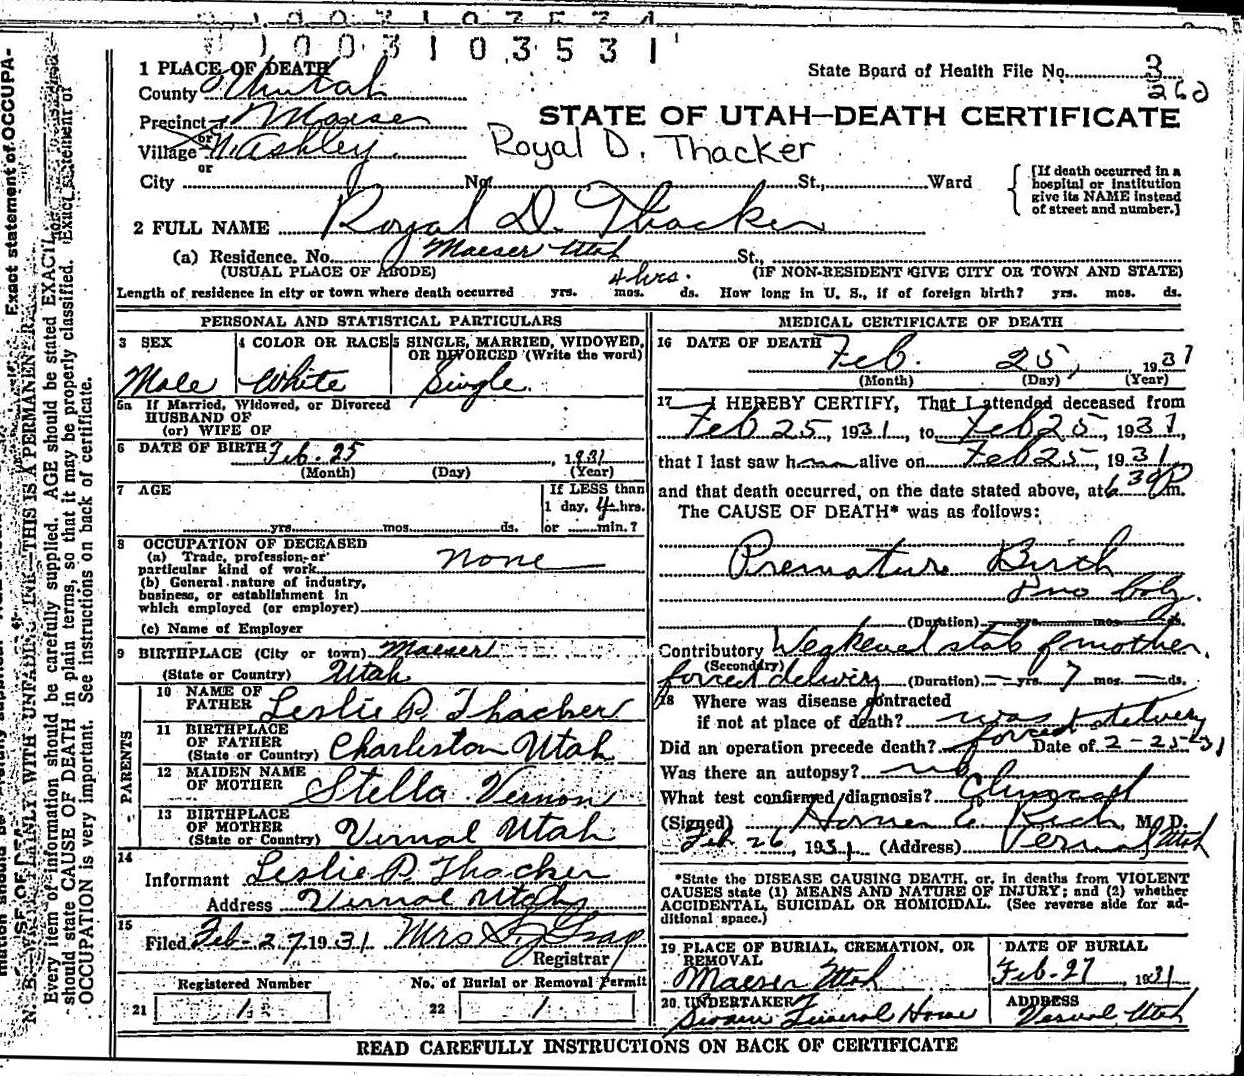 1 0 0 3 1 0 3 5 3 1
1 PLACE OF DEATH
State Board of Health File No. 3
260
County Uintah
STATE OF UTAH—DEATH CERTIFICATE
Precinct Maeser
or
Village N. Ashley
Royal D. Thacker
or
City No. St., Ward
[If death occurred in a
hospital or institution
give its NAME instead
of street and number.]
2 FULL NAME Royal D. Thacker
(a) Residence. No. Maeser Utah St.,
(USUAL PLACE OF ABODE) (IF NON-RESIDENT GIVE CITY OR TOWN AND STATE)
4 hrs.
Length of residence in city or town where death occurred yrs. mos. ds. How long in U. S., if of foreign birth? yrs. mos. ds.
PERSONAL AND STATISTICAL PARTICULARS
3 SEX 4 COLOR OR RACE 5 SINGLE, MARRIED, WIDOWED,
OR DIVORCED (Write the word)
Male White Single
5a If Married, Widowed, or Divorced
HUSBAND OF
(or) WIFE OF
6 DATE OF BIRTH Feb. 25, 1931
(Month) (Day) (Year)
7 AGE If LESS than
1 day, 4 hrs.
yrs. mos. ds. or min.?
8 OCCUPATION OF DECEASED
(a) Trade, profession or
particular kind of work none
(b) General nature of industry,
business, or establishment in
which employed (or employer)
(c) Name of Employer
9 BIRTHPLACE (City or town) Maeser
(State or Country) Utah
PARENTS
10 NAME OF
FATHER Leslie P. Thacker
11 BIRTHPLACE
OF FATHER
(State or Country) Charleston Utah
12 MAIDEN NAME
OF MOTHER Stella Vernon
13 BIRTHPLACE
OF MOTHER
(State or Country) Vernal Utah
14
Informant Leslie P. Thacker
Address Vernal Utah
15
Filed Feb-27, 1931 Mrs
Registrar
Registered Number No. of Burial or Removal Permit
21 1 22 1
MEDICAL CERTIFICATE OF DEATH
16 DATE OF DEATH Feb. 25, 1931
(Month) (Day) (Year)
17 I HEREBY CERTIFY, That I attended deceased from
Feb 25, 1931, to Feb 25, 1931,
that I last saw h alive on Feb 25, 1931
and that death occurred, on the date stated above, at 6 30 P m.
The CAUSE OF DEATH* was as follows:
Premature Birth
(Duration) yrs. mos. ds.
Contributory Weakened state of mother,
(Secondary)
forced delivery (Duration) yrs. 7 mos. ds.
18 Where was disease contracted
if not at place of death? was forced delivery
Did an operation precede death? Date of 2-25-31
Was there an autopsy? no
What test confirmed diagnosis? Clinical
(Signed) Homer E Rich, M. D.
Feb 26, 1931 (Address) Vernal, Utah
*State the DISEASE CAUSING DEATH, or, in deaths from VIOLENT
CAUSES state (1) MEANS AND NATURE OF INJURY; and (2) whether
ACCIDENTAL, SUICIDAL OR HOMICIDAL. (See reverse side for ad-
ditional space.)
19 PLACE OF BURIAL, CREMATION, OR
REMOVAL
Maeser Utah
DATE OF BURIAL
Feb-27 1931
20 UNDERTAKER
Swain Funeral Home
ADDRESS
Vernal, Utah
READ CAREFULLY INSTRUCTIONS ON BACK OF CERTIFICATE
Every item of information should be carefully supplied. AGE should be stated EXACTLY
should state CAUSE OF DEATH in plain terms, so that it may be properly classified. Exact statement of
OCCUPATION is very important. See instructions on back of certificate.